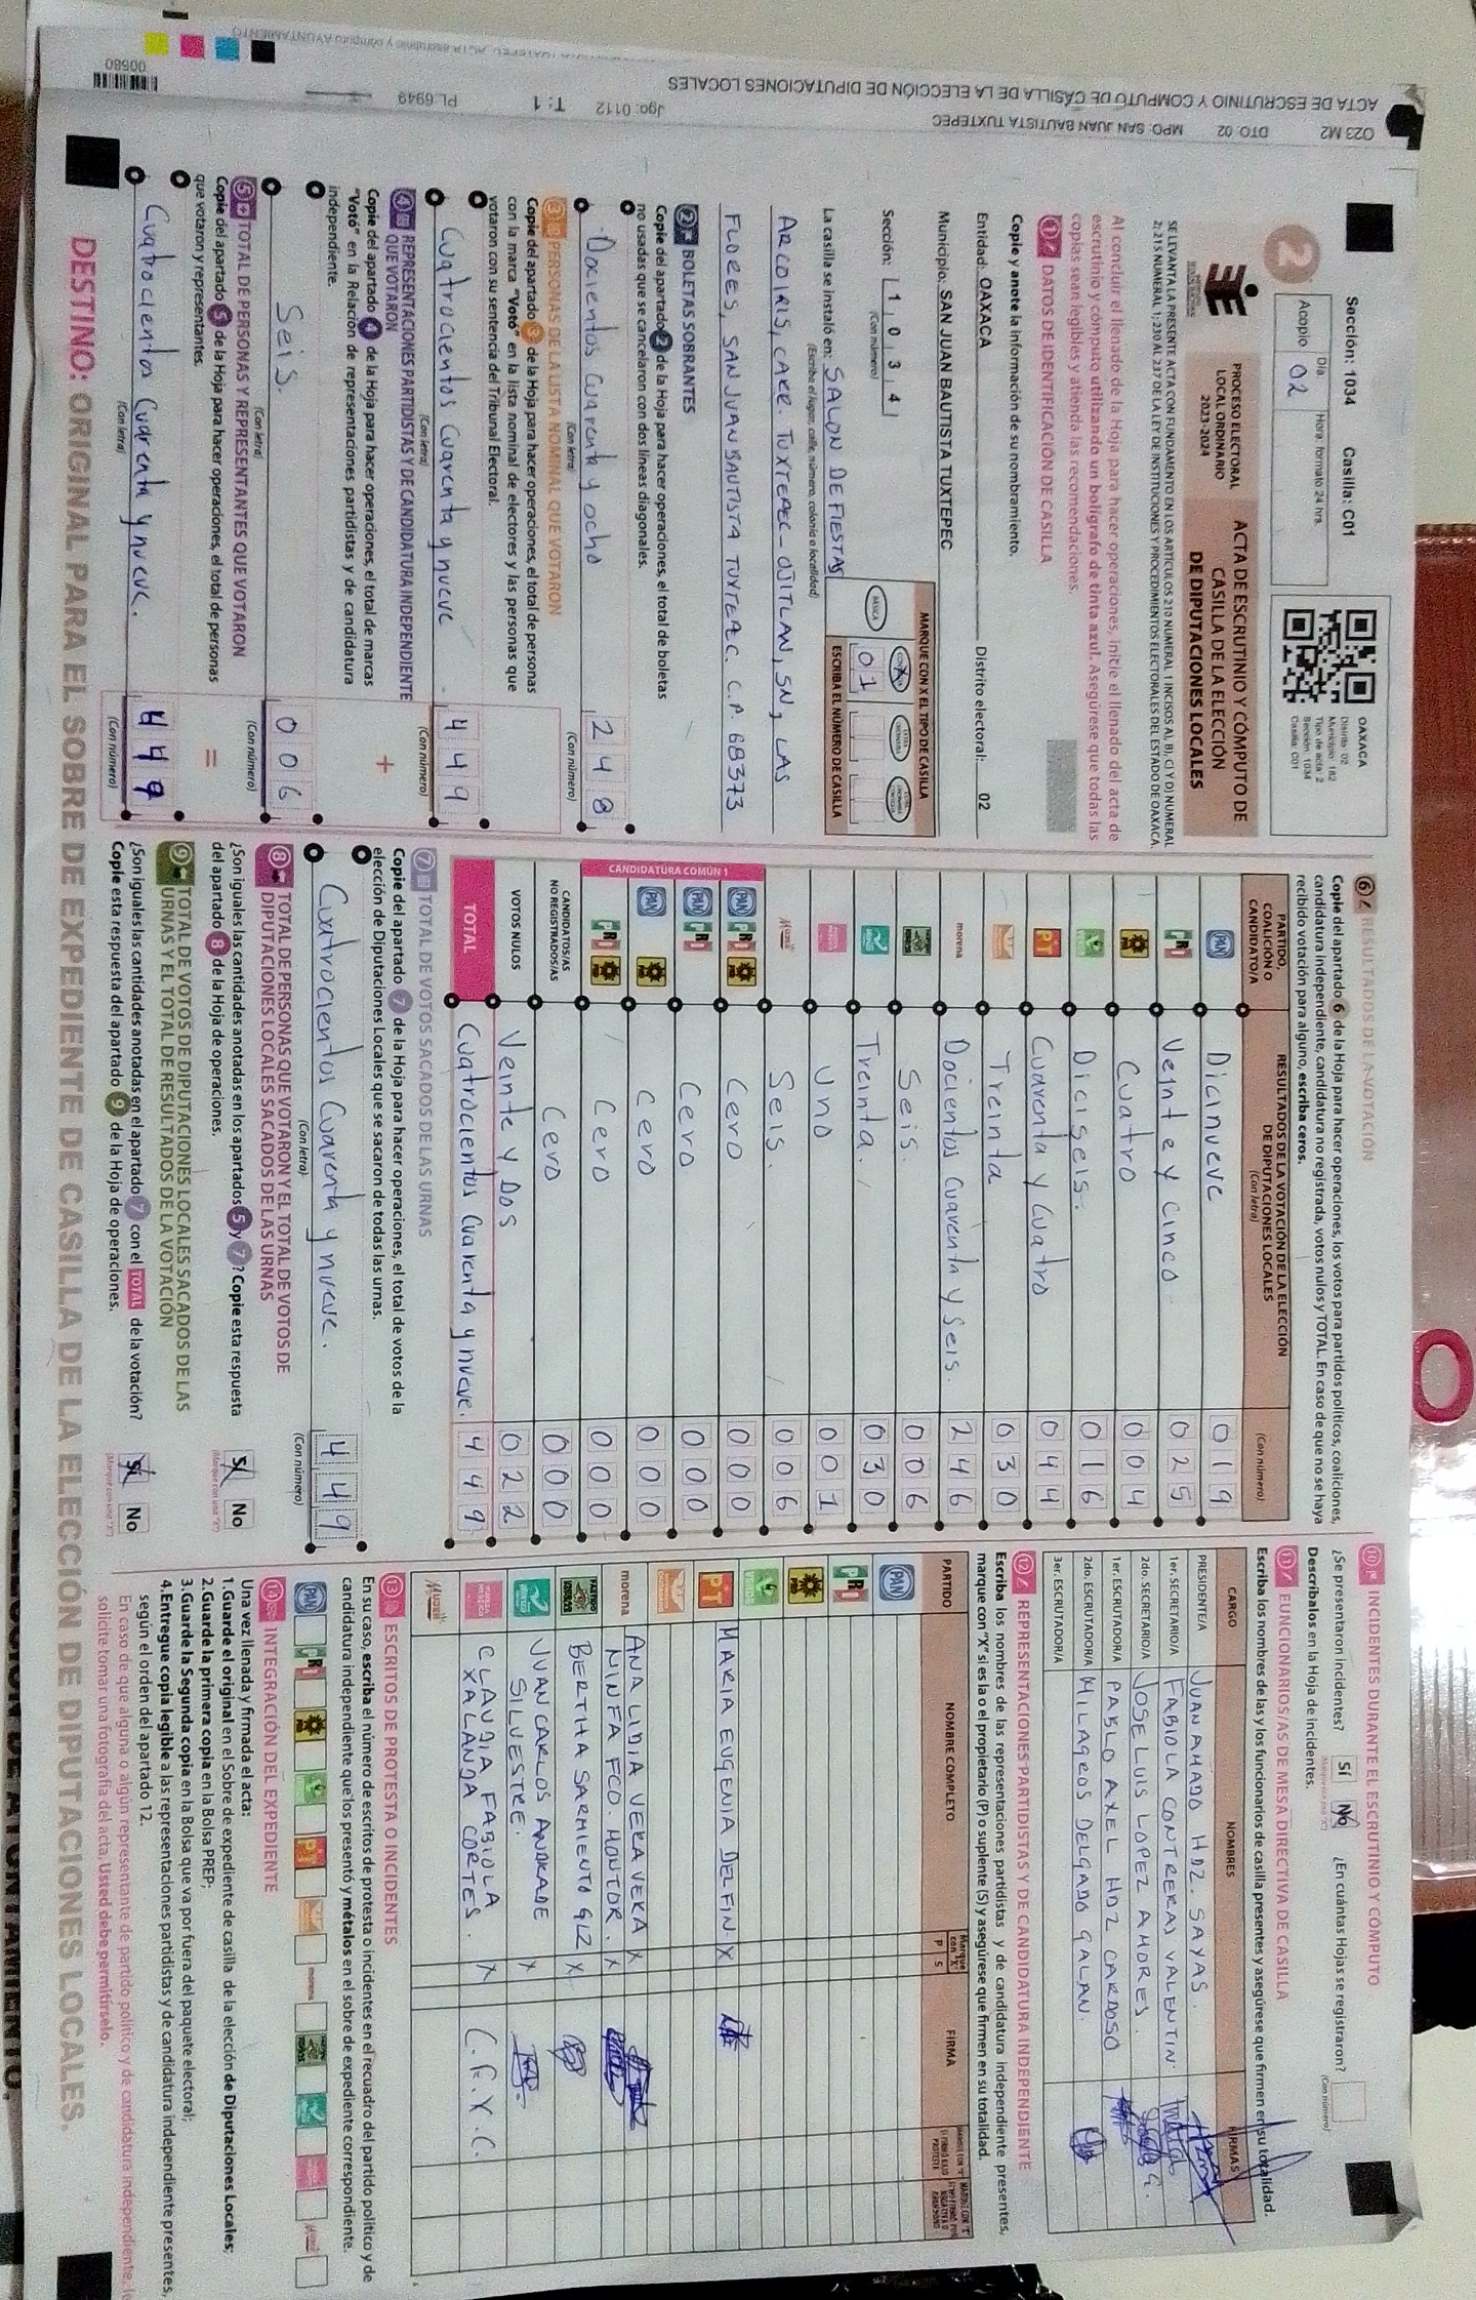 O23 M2 DTO: 02 MPO: SAN JUAN BAUTISTA TUXTEPEC
ACTA DE ESCRUTINIO Y CÓMPUTO DE CASILLA DE LA ELECCIÓN DE DIPUTACIONES LOCALES
Jgo: 0112 T: 1 PL: 6949
00580
Sección: 1034 Casilla: C01
2
Acopio Día: Hora: formato 24 hrs.
02
OAXACA
Distrito: 02
Municipio: 182
Tipo de acta: 2
Sección: 1034
Casilla: C01
PROCESO ELECTORAL
LOCAL ORDINARIO
2023-2024
ACTA DE ESCRUTINIO Y CÓMPUTO DE
CASILLA DE LA ELECCIÓN
DE DIPUTACIONES LOCALES
SE LEVANTA LA PRESENTE ACTA CON FUNDAMENTO EN LOS ARTÍCULOS 210 NUMERAL 1 INCISOS A), B), C) Y D) NUMERAL
2; 215 NUMERAL 1; 230 AL 237 DE LA LEY DE INSTITUCIONES Y PROCEDIMIENTOS ELECTORALES DEL ESTADO DE OAXACA.
Al concluir el llenado de la Hoja para hacer operaciones, inicie el llenado del acta de
escrutinio y cómputo utilizando un bolígrafo de tinta azul. Asegúrese que todas las
copias sean legibles y atienda las recomendaciones.
1 DATOS DE IDENTIFICACIÓN DE CASILLA
Copie y anote la información de su nombramiento.
Entidad: OAXACA Distrito electoral: 02
Municipio: SAN JUAN BAUTISTA TUXTEPEC
Sección: 1 0 3 4
(Con número)
MARQUE CON X EL TIPO DE CASILLA
BÁSICA
ESCRIBA EL NÚMERO DE CASILLA
0 1
La casilla se instaló en: SALON DE FIESTAS
(Escriba el lugar, calle, número, colonia o localidad)
ARCOIRIS, CARR. TUXTEPEC-OJITLAN, SN, LAS
FLOEES, SAN JUAN BAUTISTA TUXTEPEC. C.P. 68373
2 BOLETAS SOBRANTES
Copie del apartado 2 de la Hoja para hacer operaciones, el total de boletas
no usadas que se cancelaron con dos líneas diagonales.
Docientos Cuarenta y ocho 2 4 8
(Con letra) (Con número)
3 PERSONAS DE LA LISTA NOMINAL QUE VOTARON
Copie del apartado 3 de la Hoja para hacer operaciones, el total de personas
con la marca "Votó" en la lista nominal de electores y las personas que
votaron con su sentencia del Tribunal Electoral.
Cuatrocientos Cuarenta y nueve 4 4 9
(Con letra) (Con número)
4 REPRESENTACIONES PARTIDISTAS Y DE CANDIDATURA INDEPENDIENTE
QUE VOTARON
Copie del apartado 4 de la Hoja para hacer operaciones, el total de marcas
"Votó" en la Relación de representaciones partidistas y de candidatura
independiente.
+
Seis. 0 0 6
(Con letra) (Con número)
5 TOTAL DE PERSONAS Y REPRESENTANTES QUE VOTARON
Copie del apartado 5 de la Hoja para hacer operaciones, el total de personas
que votaron y representantes.
=
Cuatrocientos Cuarenta y nueve. 4 4 9
(Con letra) (Con número)
6 RESULTADOS DE LA VOTACIÓN
Copie del apartado 6 de la Hoja para hacer operaciones, los votos para partidos políticos, coaliciones,
candidatura independiente, candidatura no registrada, votos nulos y TOTAL. En caso de que no se haya
recibido votación para alguno, escriba ceros.
PARTIDO,
COALICIÓN O
CANDIDATO/A
RESULTADOS DE LA VOTACIÓN DE LA ELECCIÓN
DE DIPUTACIONES LOCALES
(Con letra) (Con número)
PAN Dicinueve 0 1 9
PRI Veinte y Cinco 0 2 5
PRD Cuatro 0 0 4
VERDE Diciseis. 0 1 6
PT Cuarenta y cuatro 0 4 4
Treinta 0 3 0
morena Docientos Cuarenta y seis. 2 4 6
Seis. 0 0 6
Treinta. 0 3 0
Uno 0 0 1
Seis. 0 0 6
CANDIDATURA COMÚN 1
PAN PRI PRD Cero 0 0 0
PAN PRI Cero 0 0 0
PAN PRD Cero 0 0 0
PRI PRD Cero 0 0 0
CANDIDATOS/AS
NO REGISTRADOS/AS Cero 0 0 0
VOTOS NULOS Veinte y Dos 0 2 2
TOTAL Cuatrocientos Cuarenta y nueve. 4 4 9
7 TOTAL DE VOTOS SACADOS DE LAS URNAS
Copie del apartado 7 de la Hoja para hacer operaciones, el total de votos de la
elección de Diputaciones Locales que se sacaron de todas las urnas.
Cuatrocientos Cuarenta y nueve. 4 4 9
(Con letra) (Con número)
8 TOTAL DE PERSONAS QUE VOTARON Y EL TOTAL DE VOTOS DE
DIPUTACIONES LOCALES SACADOS DE LAS URNAS
¿Son iguales las cantidades anotadas en los apartados 5 y 7? Copie esta respuesta
del apartado 8 de la Hoja de operaciones.
Sí No
(Marque con una "X")
9 TOTAL DE VOTOS DE DIPUTACIONES LOCALES SACADOS DE LAS
URNAS Y EL TOTAL DE RESULTADOS DE LA VOTACIÓN
¿Son iguales las cantidades anotadas en el apartado 7 con el TOTAL de la votación?
Copie esta respuesta del apartado 9 de la Hoja de operaciones.
Sí No
(Marque con una "X")
10 INCIDENTES DURANTE EL ESCRUTINIO Y CÓMPUTO
¿Se presentaron incidentes? Sí No ¿En cuántas Hojas se registraron?
(Con número)
Descríbalos en la Hoja de incidentes.
11 FUNCIONARIOS/AS DE MESA DIRECTIVA DE CASILLA
Escriba los nombres de las y los funcionarios de casilla presentes y asegúrese que firmen en su totalidad.
CARGO NOMBRES FIRMAS
PRESIDENTE/A JUAN AMADO HDZ. SAYAS.
1er. SECRETARIO/A FABIOLA CONTRERAS VALENTIN.
2do. SECRETARIO/A JOSE LUIS LOPEZ AMORES.
1er. ESCRUTADOR/A PABLO AXEL HDZ CARDOSO
2do. ESCRUTADOR/A MILAGROS DELGADO GALAN.
3er. ESCRUTADOR/A
12 REPRESENTACIONES PARTIDISTAS Y DE CANDIDATURA INDEPENDIENTE
Escriba los nombres de las representaciones partidistas y de candidatura independiente presentes,
marque con "X" si es la o el propietario (P) o suplente (S) y asegúrese que firmen en su totalidad.
PARTIDO NOMBRE COMPLETO Marque con "X" P S FIRMA
PAN
PRI
PRD
VERDE
PT MARIA EUGENIA DELFIN. X
morena ANA LIDIA VERA VERA X
NINFA FCO. MONTOR. X
BERTHA SARMIENTO GLZ X
JUAN CARLOS ANDRADE
SILVESTRE. X
CLAUDIA FABIOLA
XALANDA CORTES. X C.F.X.C.
13 ESCRITOS DE PROTESTA O INCIDENTES
En su caso, escriba el número de escritos de protesta o incidentes en el recuadro del partido político y de
candidatura independiente que los presentó y métalos en el sobre de expediente correspondiente.
PAN PRI PRD VERDE PT morena
14 INTEGRACIÓN DEL EXPEDIENTE
Una vez llenada y firmada el acta:
1.Guarde el original en el Sobre de expediente de casilla de la elección de Diputaciones Locales;
2.Guarde la primera copia en la Bolsa PREP;
3.Guarde la Segunda copia en la Bolsa que va por fuera del paquete electoral;
4.Entregue copia legible a las representaciones partidistas y de candidatura independiente presentes,
según el orden del apartado 12.
En caso de que alguna o algún representante de partido político y de candidatura independiente, le
solicite tomar una fotografía del acta, Usted debe permitírselo.
DESTINO: ORIGINAL PARA EL SOBRE DE EXPEDIENTE DE CASILLA DE LA ELECCIÓN DE DIPUTACIONES LOCALES.